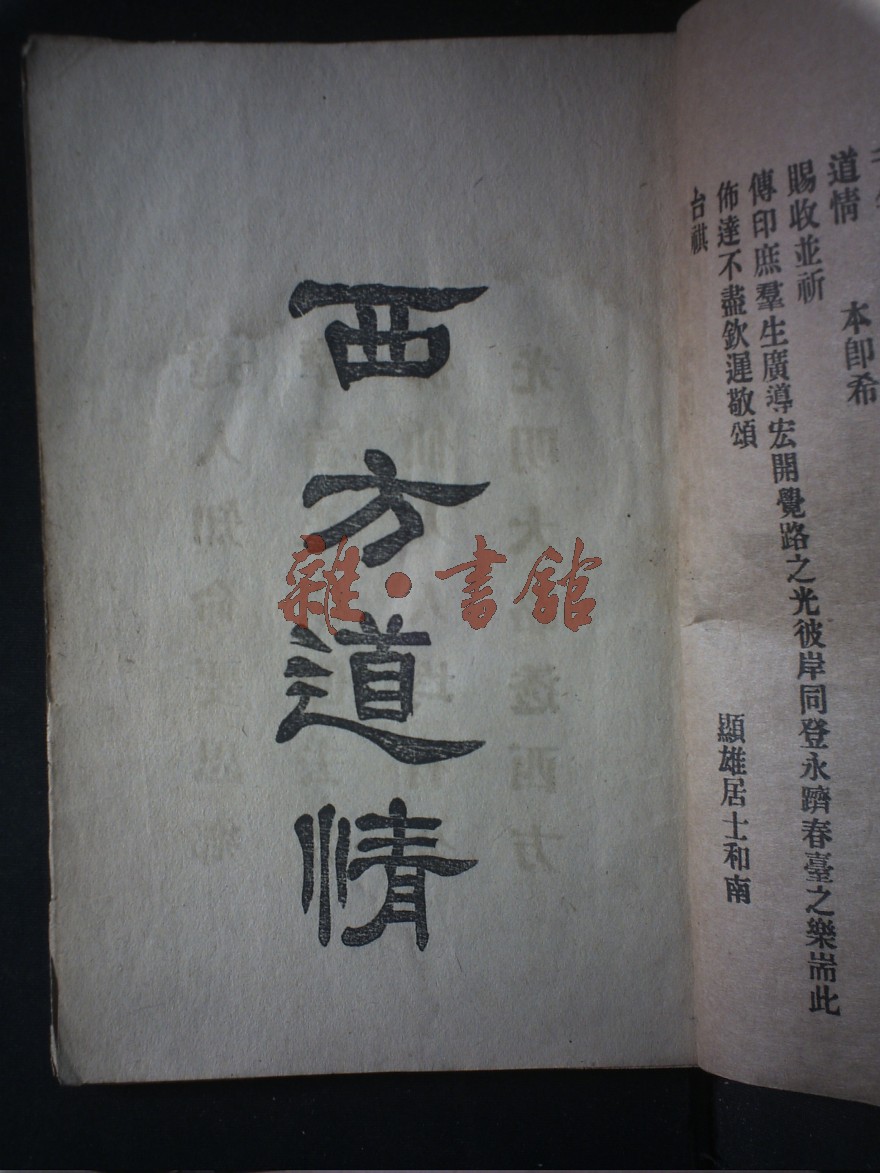 道情
本卽希
賜收並祈
傳印庶羣生廣導宏開覺路之光彼岸同登永躋春臺之樂耑此
佈達不盡欽遲敬頌
台祺
顯雄居士和南
西方道情
雜·書館